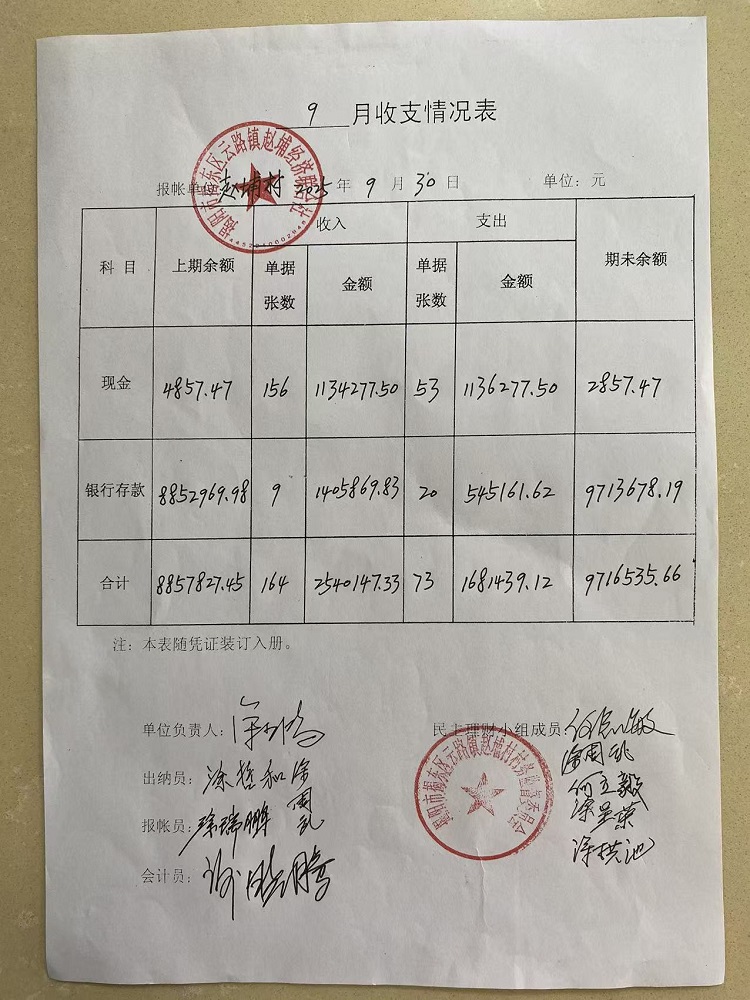 9 月收支情况表
揭阳市揭东区云路镇赵埔经济联合社
报帐单位 赵埔村 2025年 9 月 30 日 单位：元
科目 上期余额 收入 支出 期未余额
单据张数 金额 单据张数 金额
现金 4857.47 156 1134277.50 53 1136277.50 2857.47
银行存款 8852969.98 9 1405869.83 20 545161.62 9713678.19
合计 8857827.45 164 2540147.33 73 1681439.12 9716535.66
注：本表随凭证装订入册。
单位负责人：
民主理财小组成员：
揭阳市揭东区云路镇赵埔村村务监督委员会
出纳员：涂哲和
报帐员：涂瑞鹏
会计员：